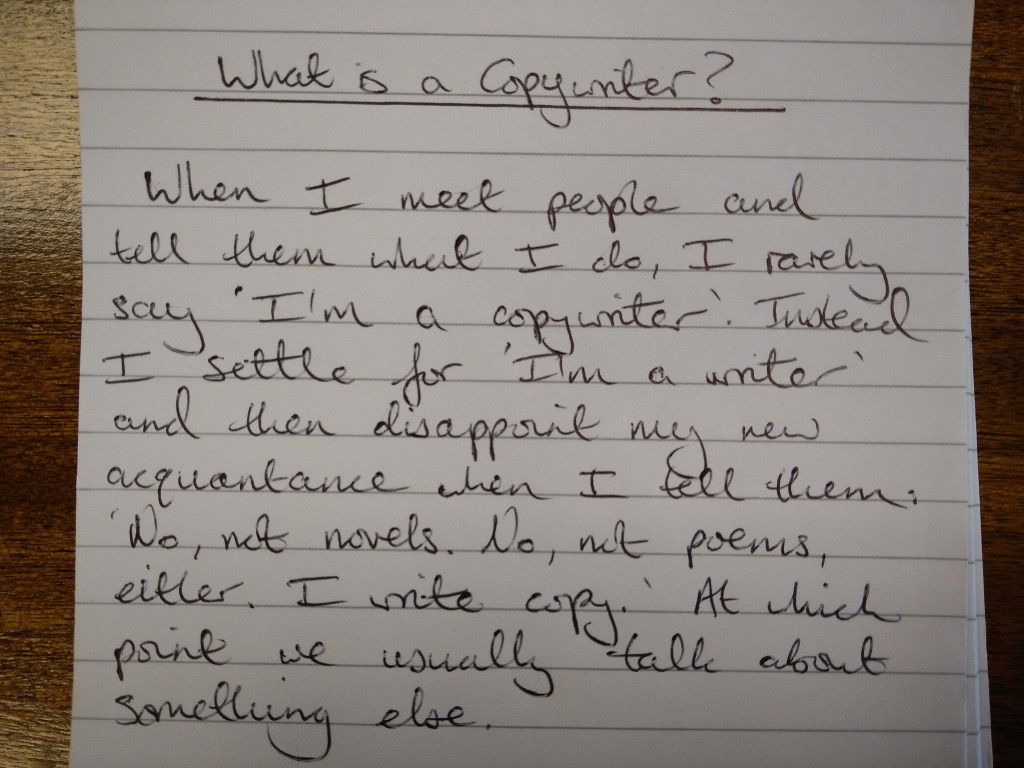 What is a Copywriter?
When I meet people and
tell them what I do, I rarely
say 'I'm a copywriter'. Instead
I settle for 'I'm a writer'
and then disappoint my new
acquantance when I tell them:
'No, not novels. No, not poems,
either. I write copy.' At which
point we usually talk about
something else.